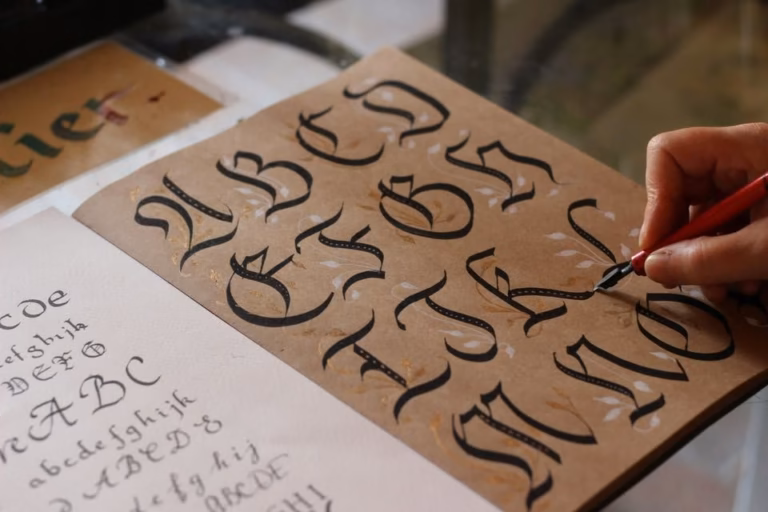 lier
ABCD
EFGH
IJKL
MNO
CDe
efghijk
DEFG
ABC
abcdefghijk
ABCDE
defghij
ABCDE